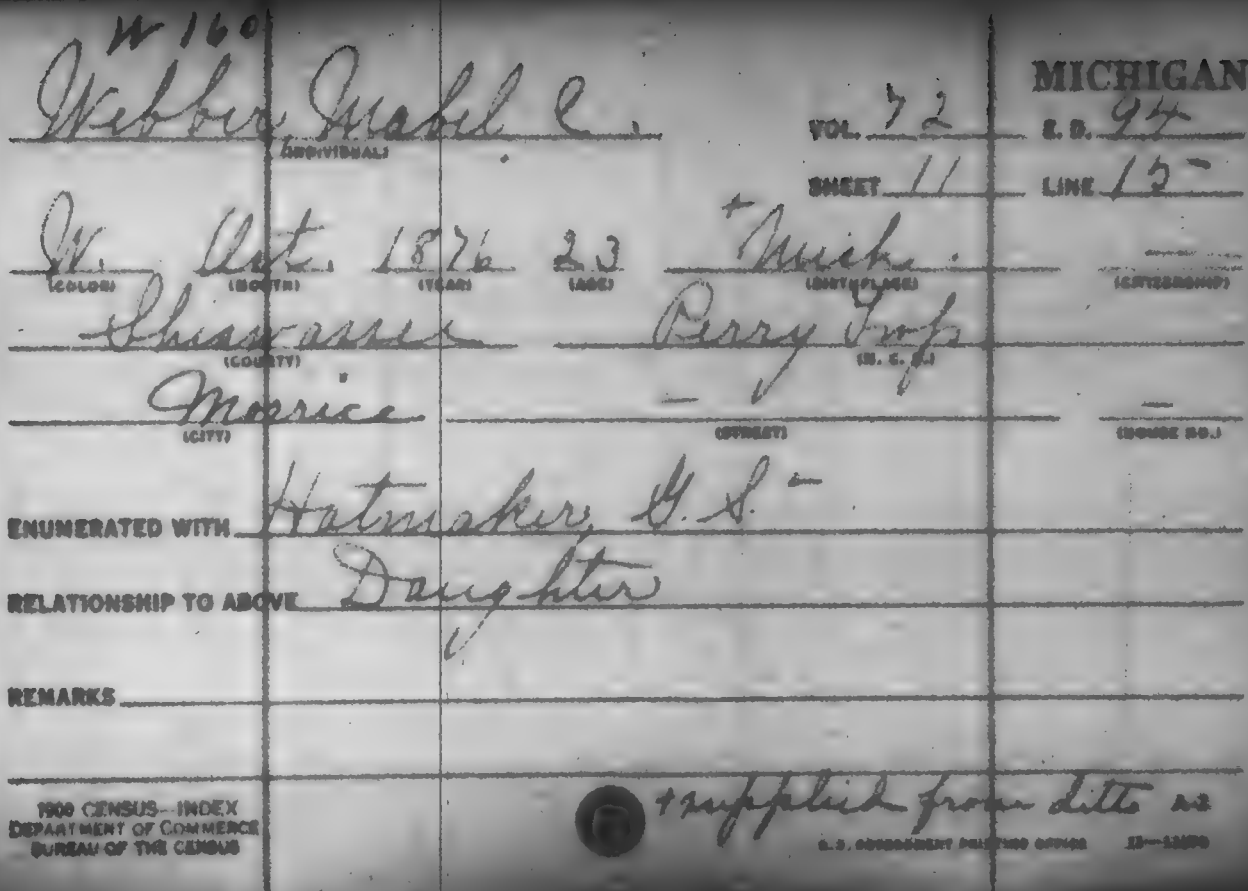 W 160
MICHIGAN
Webber, Mabel C.
(INDIVIDUAL)
VOL. 72 E. D. 94
SHEET 11 LINE 15
W. Oct. 1876 23 + Mich. —
(COLOR) (MONTH) (YEAR) (AGE) (BIRTHPLACE) (CITIZENSHIP)
Shiawassee Perry Twp
(COUNTY) (M. C. D.)
Morrice — —
(CITY) (STREET) (HOUSE NO.)
ENUMERATED WITH Hatmaker, G. S. -
RELATIONSHIP TO ABOVE Daughter
REMARKS
+ supplied from ditto A-2
1900 CENSUS—INDEX
DEPARTMENT OF COMMERCE
BUREAU OF THE CENSUS
U.S. GOVERNMENT PRINTING OFFICE